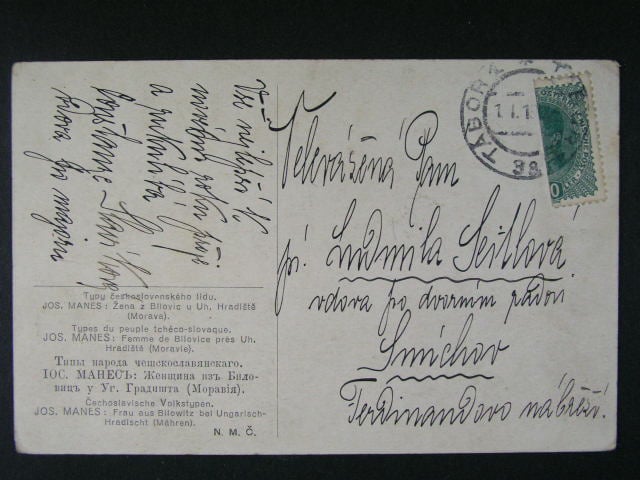 Vše nejlepší k
novému roku přeje
a ruku líbá
Velevážená Paní
pí. Ludmila Seitlová
vdova po dvorním radovi
Smíchov
Ferdinandovo nábřeží.
TÁBOR
Typy československého lidu.
JOS. MANES: Žena z Bílovic u Uh. Hradiště
(Morava).
Types du peuple tchéco-slovaque.
JOS. MANES: Femme de Bilovice près Uh.
Hradiště (Moravie).
Типы народа чешскославянскаго.
ІОС. МАНЕСЪ: Женщина изъ Било-
виць у Уг. Градишта (Моравія).
Čechoslavische Volkstypen.
JOS. MANES: Frau aus Bilowitz bei Ungarisch-
Hradischt (Mähren).
N. M. Č.